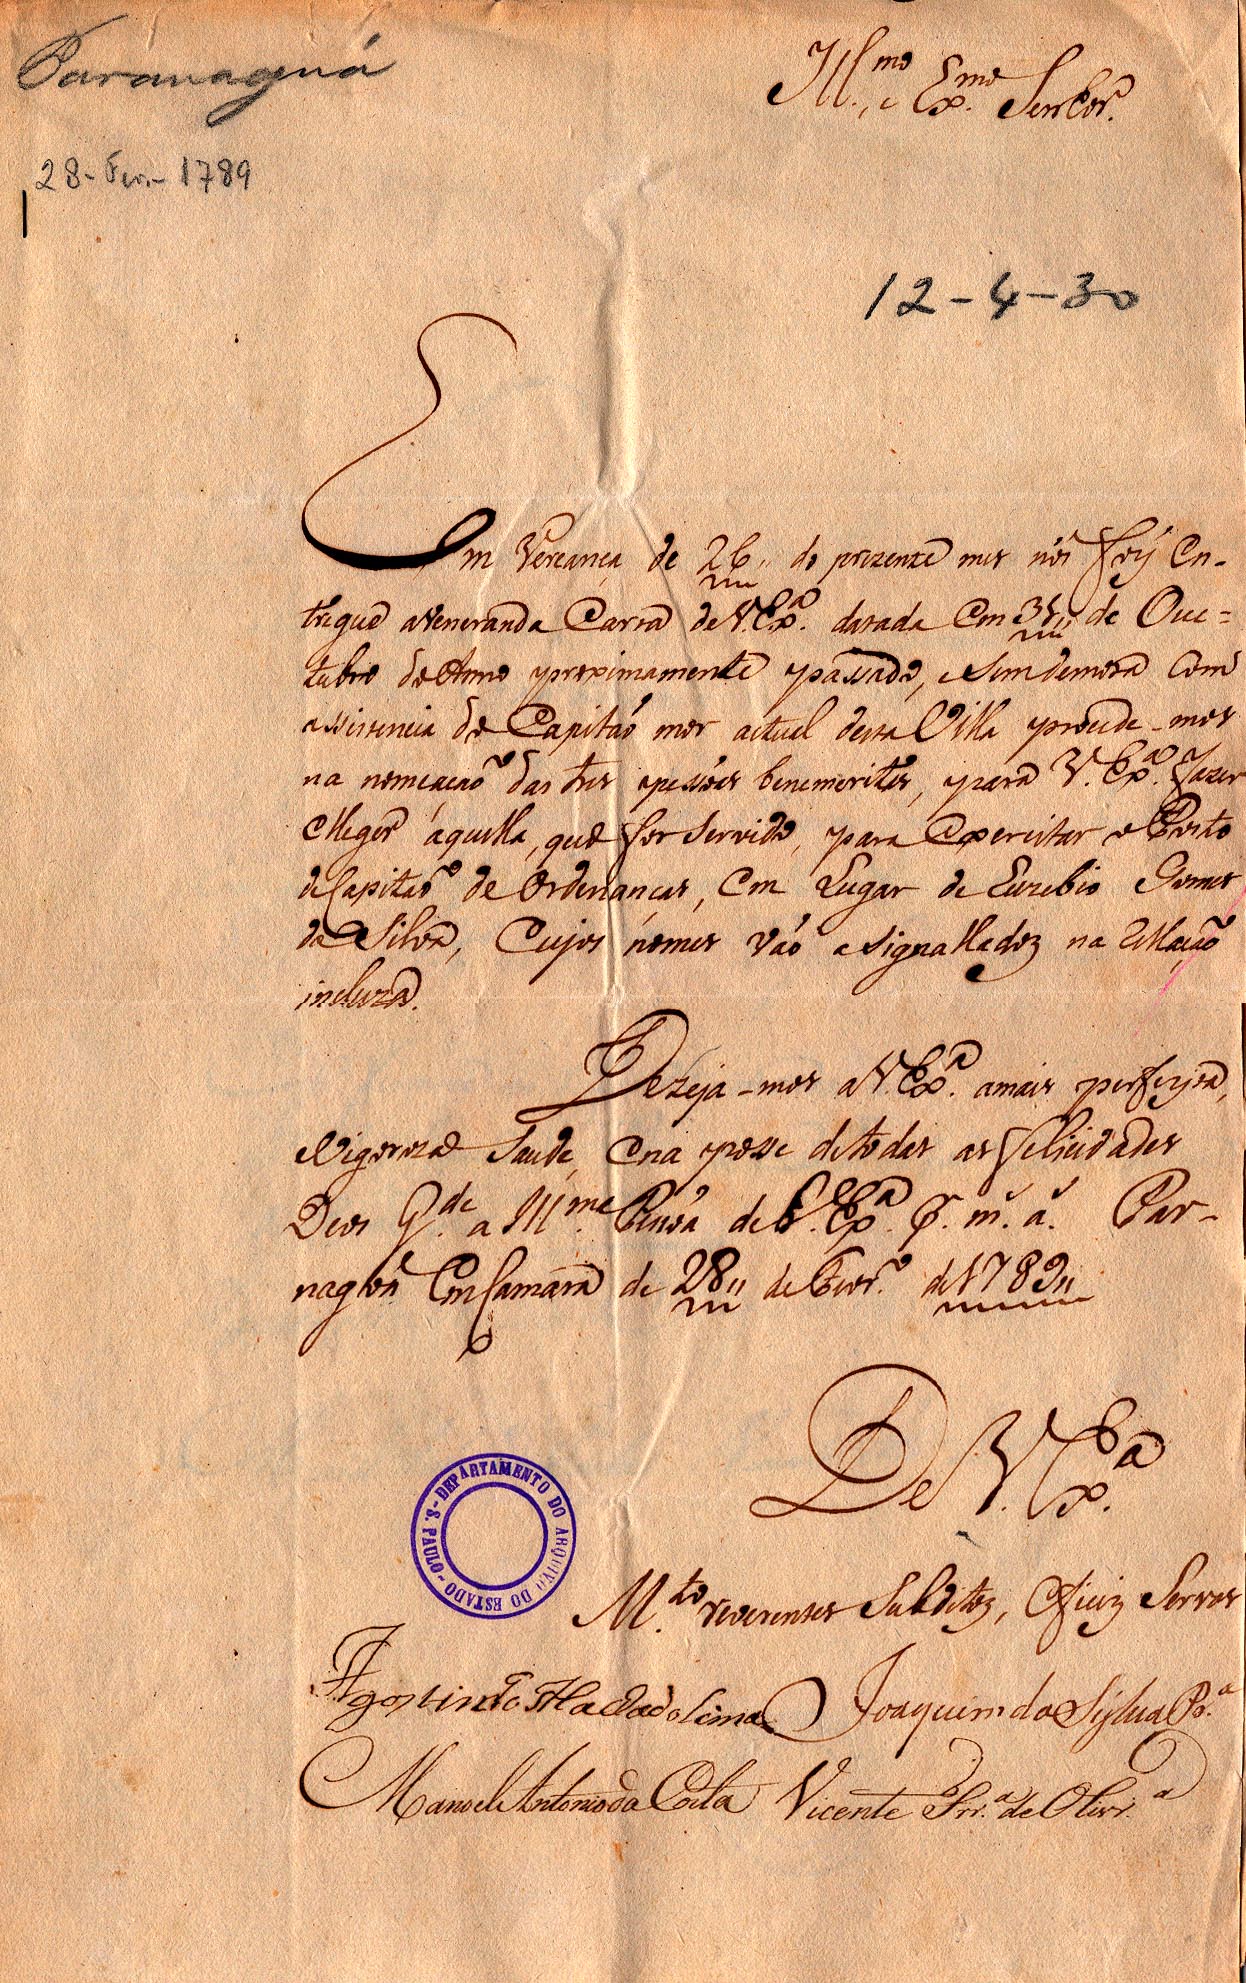 Paranaguá
Ill.mo, e Ex.mo Senhor.
28-Fev.-1789
12-4-30
Em Vereança de 26,, do prezente mes nos foy en-
tregue a Veneranda Carta de V. Ex.a datada em 31,, de Ouc=
tubro do Anno proximamente passado, e sem demora com
assistencia do Capitaõ mor actual desta Villa procede-mos
na nomeaçaõ das tres pessoas benemeritas, para V. Ex.a fazer
elleger áquella, que for servido, para exercitar o Posto
de Capitaõ de Ordenanças, em Lugar de Euzebio Gomes
da Silva, Cujos nomes vaõ asignalladoz na Rellaçaõ
incluza.
Dezeja-mos a V. Ex.a a mais perfeyta,
e Vigoroza Saude, e na posse de todas as felicidades
Deos G.de a Ill.ma Pessoa de V. Ex.a P. m. a. Par-
nagoá em Camara de 28,, de Fevr.o de 1789,,
De V. Ex.a
M.to reverentes Subditoz, e fieiz Servos
Agostinho Machado Lima Joaquim da Sylva P.a
Manoel Antonio da Costa Vicente Frr.a de Olivr.a
DEPARTAMENTO DO ARQUIVO DO ESTADO - S. PAULO -